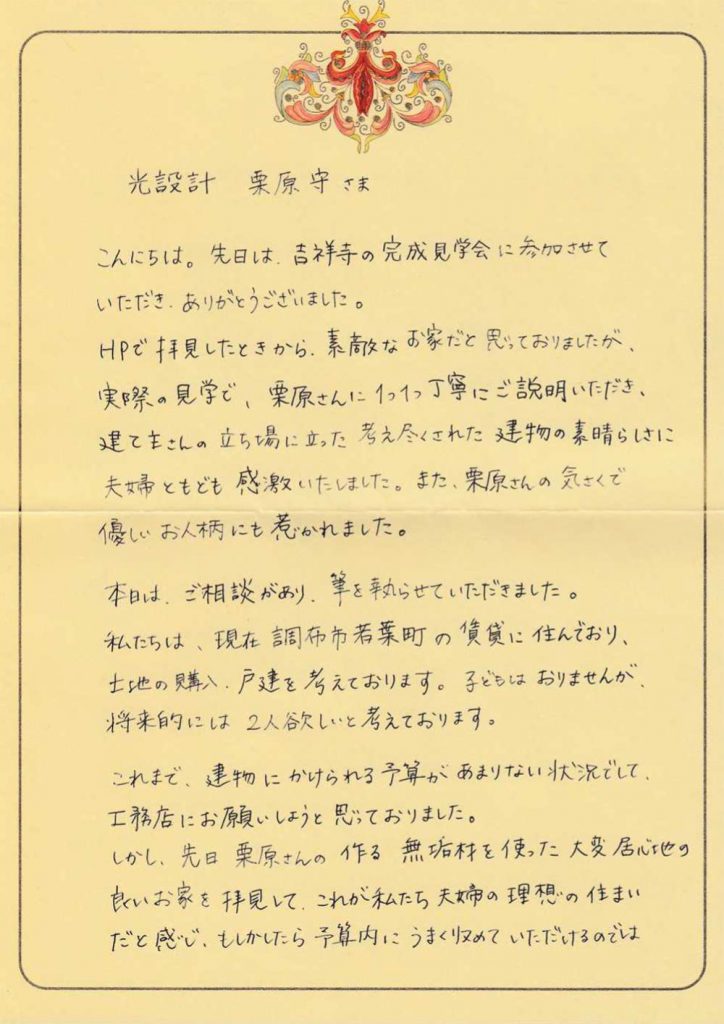 光設計　栗原守さま
こんにちは。先日は、吉祥寺の完成見学会に参加させて
いただき、ありがとうございました。
HPで拝見したときから、素敵なお家だと思っておりましたが、
実際の見学で、栗原さんに1つ1つ丁寧にご説明いただき、
建て主さんの立ち場に立った考え尽くされた建物の素晴らしさに
夫婦ともども感激いたしました。また、栗原さんの気さくで
優しいお人柄にも惹かれました。
本日は、ご相談があり、筆を執らせていただきました。
私たちは、現在調布市若葉町の賃貸に住んでおり、
土地の購入、戸建を考えております。子どもはおりませんが、
将来的には2人欲しいと考えております。
これまで、建物にかけられる予算があまりない状況でして、
工務店にお願いしようと思っておりました。
しかし、先日栗原さんの作る無垢材を使った大変居心地の
良いお家を拝見して、これが私たち夫婦の理想の住まい
だと感じ、もしかしたら予算内にうまく収めていただけるのでは